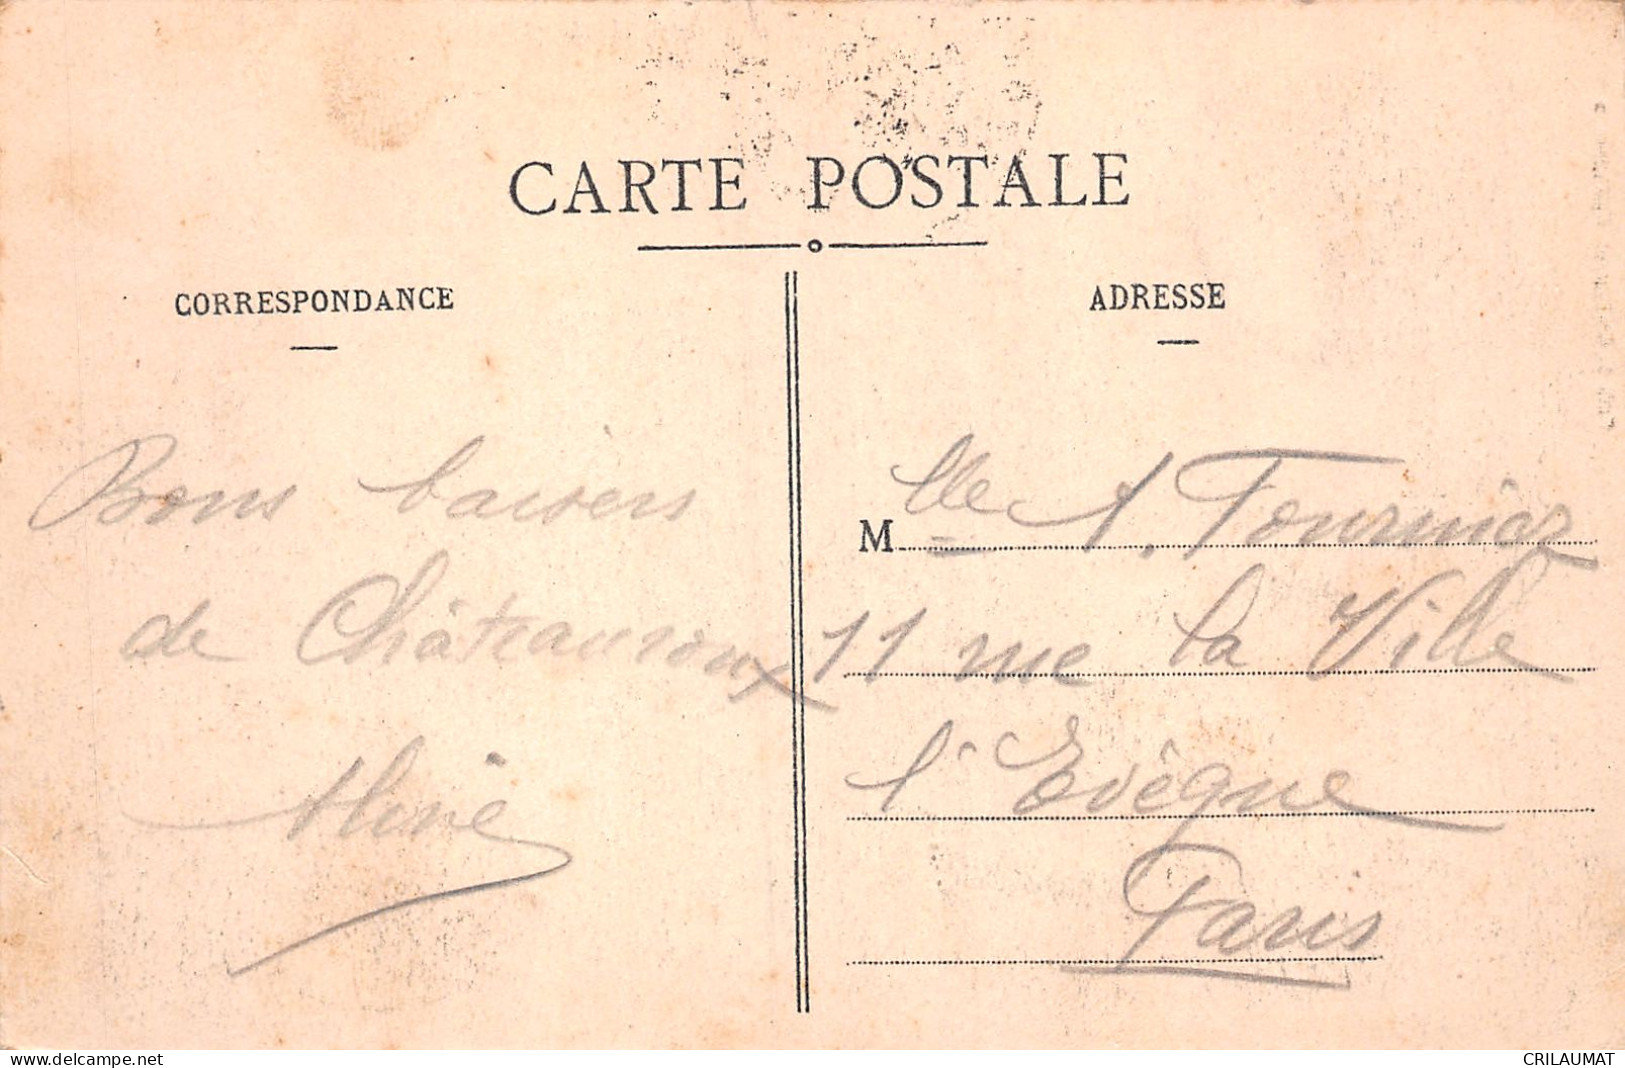 CARTE POSTALE
CORRESPONDANCE
ADRESSE
Bons baisers
de Châteauroux
Aline
Mlle A. Fournier
11 rue la Ville
l'Evêque
Paris
www.delcampe.net
CRILAUMAT